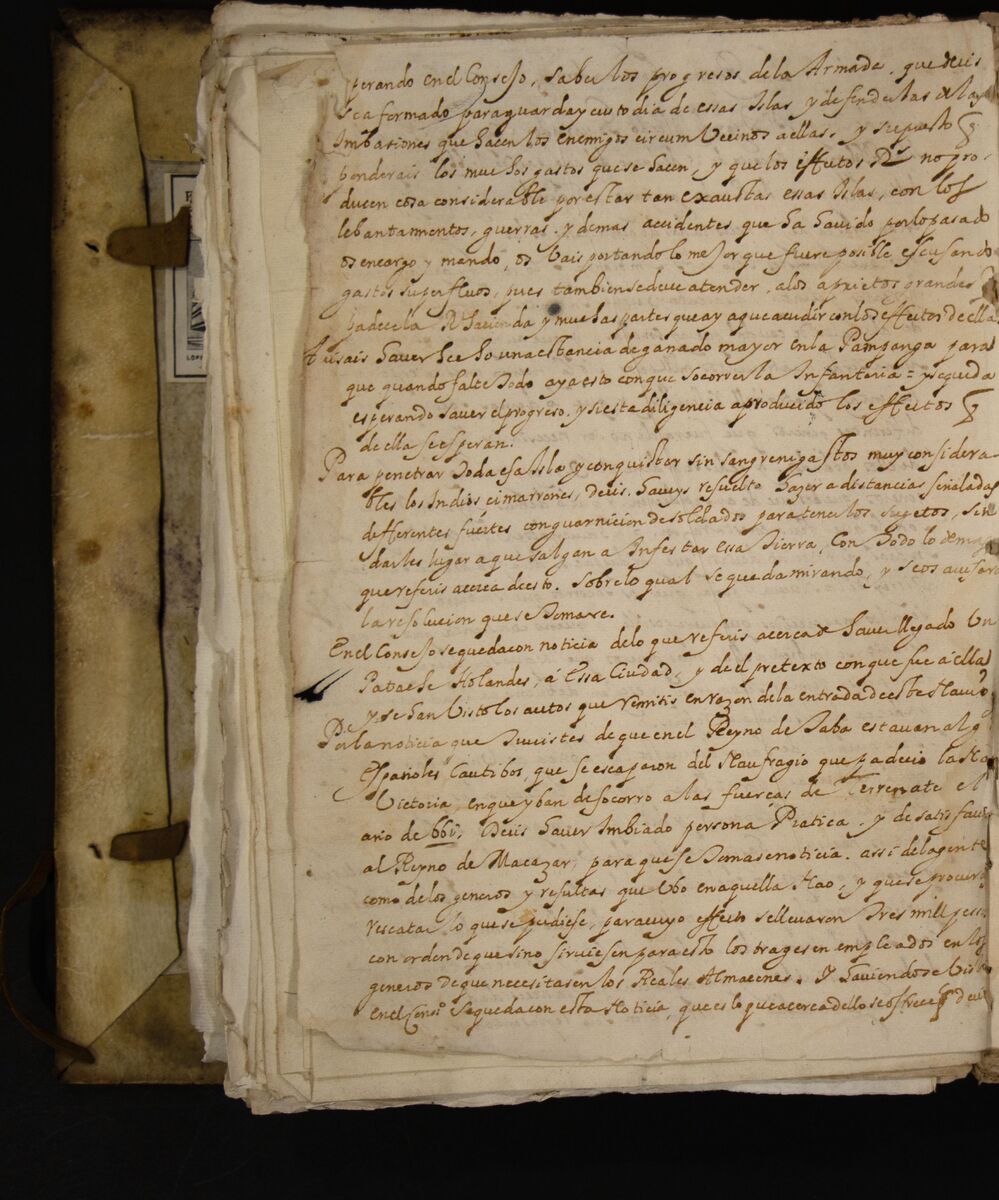 perando en el Consejo, saber los progresos de la Armada, que decis
se a formado para guarda y custodia de essas Islas y defenderlas de las
Imbasiones que hacen los enemigos circumVecinos a ellas, y supuesto q
ponderais los muchos gastos que se hacen, y que los effectos no pro-
ducen cosa considerable por estar tan exaustas essas Islas, con los
lebantamientos, guerras, y demas accidentes que ha havido por lo pasado
os encargo y mando, os Vais portando lo mejor que fuere posible, escusando
gastos superfluos, pues tambien se deve atender, a los aprietos grandes q
padece la Rl hacienda y muchas partes que ay a que acudir con los effectos de ella.
Avisais haver hecho una estancia de ganado mayor en la Pampanga para
que quando falte todo aya esto con que socorrer la Infanteria = y se queda
esperando saver el progreso, y si esta diligencia a producido los effectos q
de ella se esperan.
Para penetrar toda esa Isla y conquistar sin sangre ni gastos muy considera-
bles los Indios cimarrones, decis, haveys resuelto hazer a distancias señaladas
differentes fuertes con guarnicion de soldados para tenerlos sugetos, sin
darles lugar a que salgan a Infestar essa tierra, Con todo lo demas
que referis acerca de esto. sobre lo qual se queda mirando, y se os avisara
la resolucion que se tomare.
En el Consejo se queda con noticia de lo que referis acerca de haver llegado Un
Patache Holandes, á Essa Ciudad, y de el pretexto con que fue a ella
y se han Visto los autos que remitis en razon de la entrada de este Navio
Por la noticia que tuvistes de que en el Reyno de Jaba estavan alg
Españoles Cautibos, que se escaparon del Naufragio que padecio la Na
Victoria, en que yban de socorro a las fuerças de Terrenate el
año de 661. Decis haver Imbiado persona Platica, y de satisfaci
al Reyno de Macazar, para que se tomase noticia, assi de la gente
como de los generos y resultas que Ubo en aquella Nao, y que se procura
rescatar lo que se pudiese, para cuyo effecto se llevaron tres mill pess
con orden de que si no sirviesen para esto los trages en empleados en los
generos de que necesitasen los Reales Almacenes. Y haviendose Visto
en el Conso se queda con esta Noticia, que es lo que acerca dello se ofrece